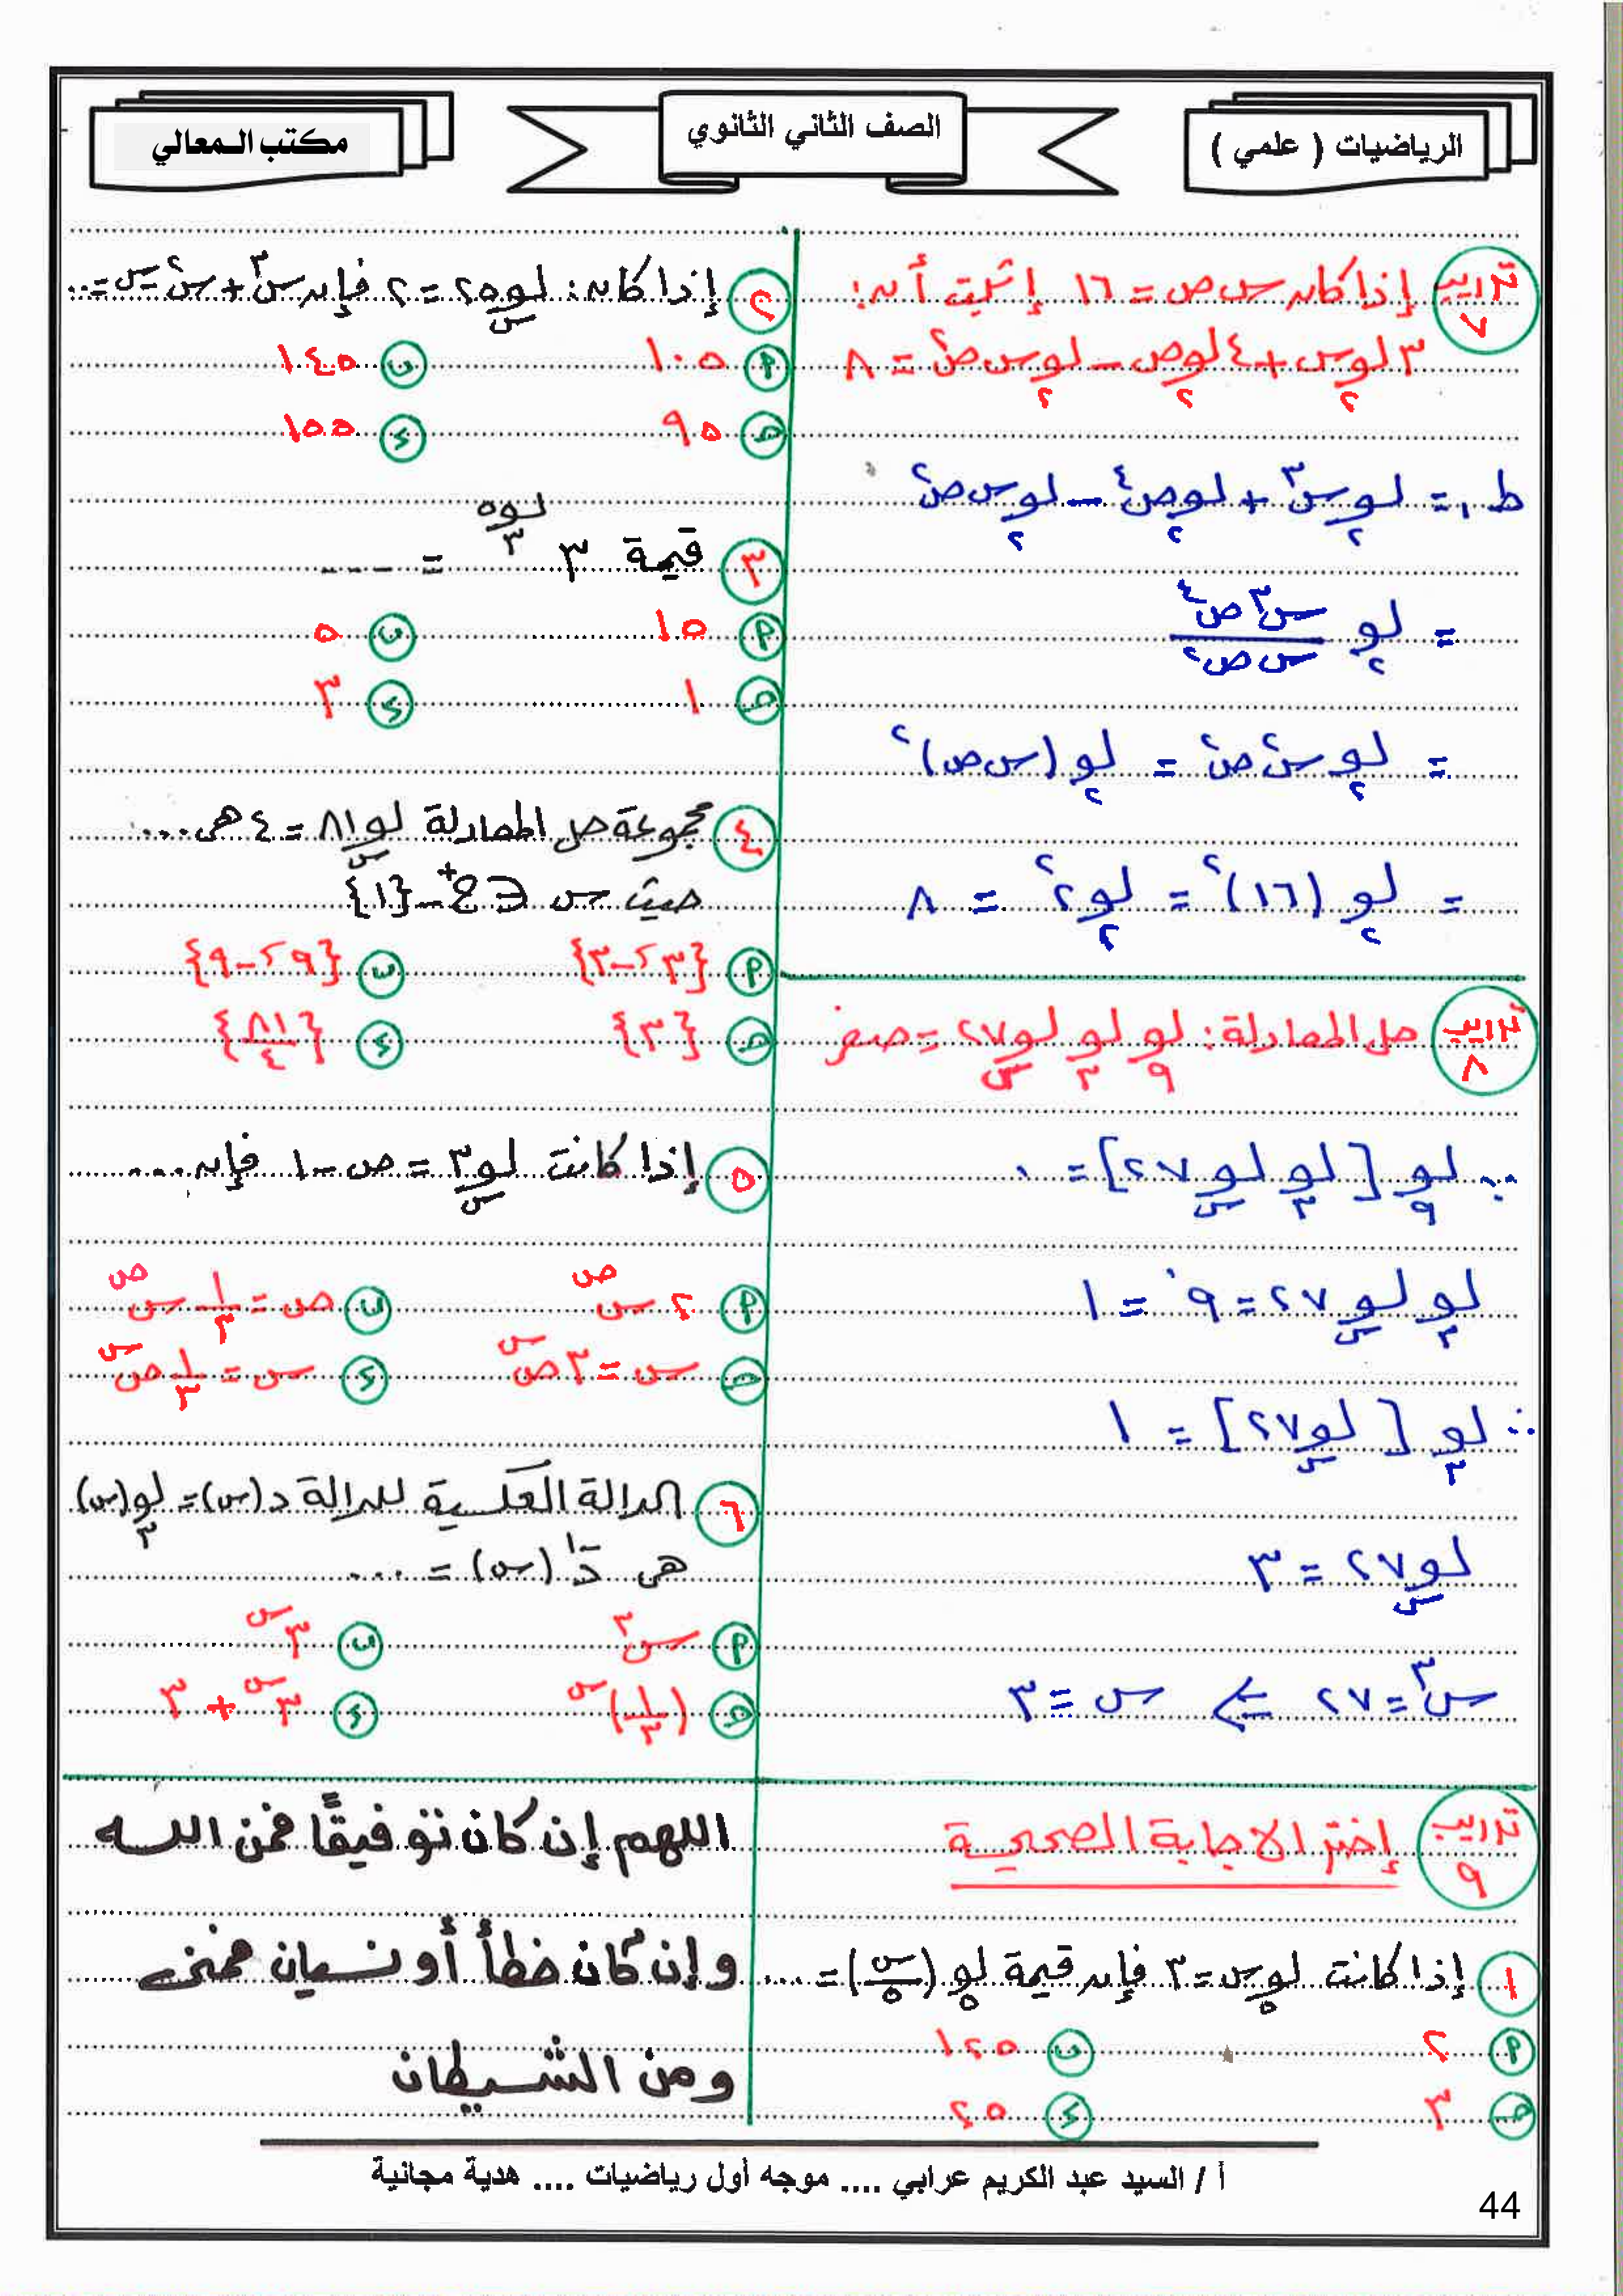 الرياضيات ( علمي )
الصف الثاني الثانوي
مكتب المعالي
تدريب ٧
إذا كان س ص = ١٦ إثبت أن:
٣ لو₂ س + ٤ لو₂ ص − لو₂ س ص² = ٨
ط١ = لو₂ س³ + لو₂ ص⁴ − لو₂ س ص²
= لو₂ (س³ ص⁴ / س ص²)
= لو₂ س² ص² = لو₂ (س ص)²
= لو₂ (١٦)² = لو₂ ٢⁸ = ٨
تدريب ٨
حل المعادلة: لو₉ لو₃ لوس ٢٧ = صفر
∵ لو₉ [لو₃ لوس ٢٧] = ٠
لو₃ لوس ٢٧ = ٩⁰ = ١
∴ لو₃ [لوس ٢٧] = ١
لوس ٢٧ = ٣
س³ = ٢٧ ⇐ س = ٣
تدريب ٩
إختر الاجابة الصحيحة
١ إذا كانت لو₅ س = ٣ فإن قيمة لو₅ (س/٥) = ...
أ ٢ ب ١٢٥
حـ ٣ د ٢٥
٢ إذا كان: لوس ٢٥ = ٢ فإن س³ + س² − س = ...
أ ١٠٥ ب ١٤٥
حـ ٩٥ د ١٥٥
٣ قيمة ٣^(لو₃ ٥) = ----
أ ١٥ ب ٥
حـ ١ د ٣
٤ مجموعة حل المعادلة لوس ٨١ = ٤ هى ...
حيث س ∈ ح⁺ − {١}
أ {٣، −٣} ب {٩، −٩}
حـ {٣} د {٨١/٤}
٥ إذا كانت لوس ٣ = ص − ١ فإن ...
أ ٢ س^ص ب ص = ١/٣ س^ص
حـ س = ٣ ص^س د س = ١/٣ ص^س
٦ الدالة العكسية للدالة د(س) = لو₃(س)
هى د⁻¹(س) = ...
أ س³ ب ٣^س
حـ (١/٣)^س د ٣^س + ٣
اللهم إن كان توفيقًا فمن الله
وإن كان خطأ أو نسيان فمنى
ومن الشيطان
أ / السيد عبد الكريم عرابي .... موجه أول رياضيات .... هدية مجانية
44